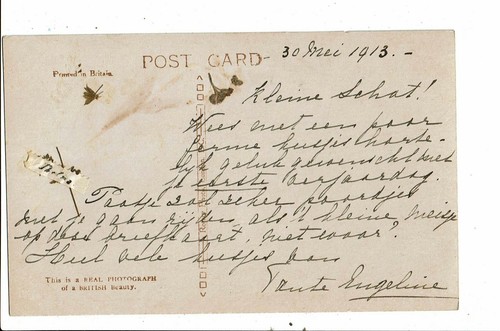 POST CARD
30 Mei 1913. -
Printed in Britain.
Kleine Schat!
Wees met een paar
ferme kusjes harte-
lijk geluk gewenscht met
je eerste verjaardag.
zal zeker paardje
met je gaan rijden, als 't kleine meisje
op deze briefkaart, niet waar?
Heel vele kusjes van
Tante Engeline
This is a REAL PHOTOGRAPH
of a BRITISH Beauty.